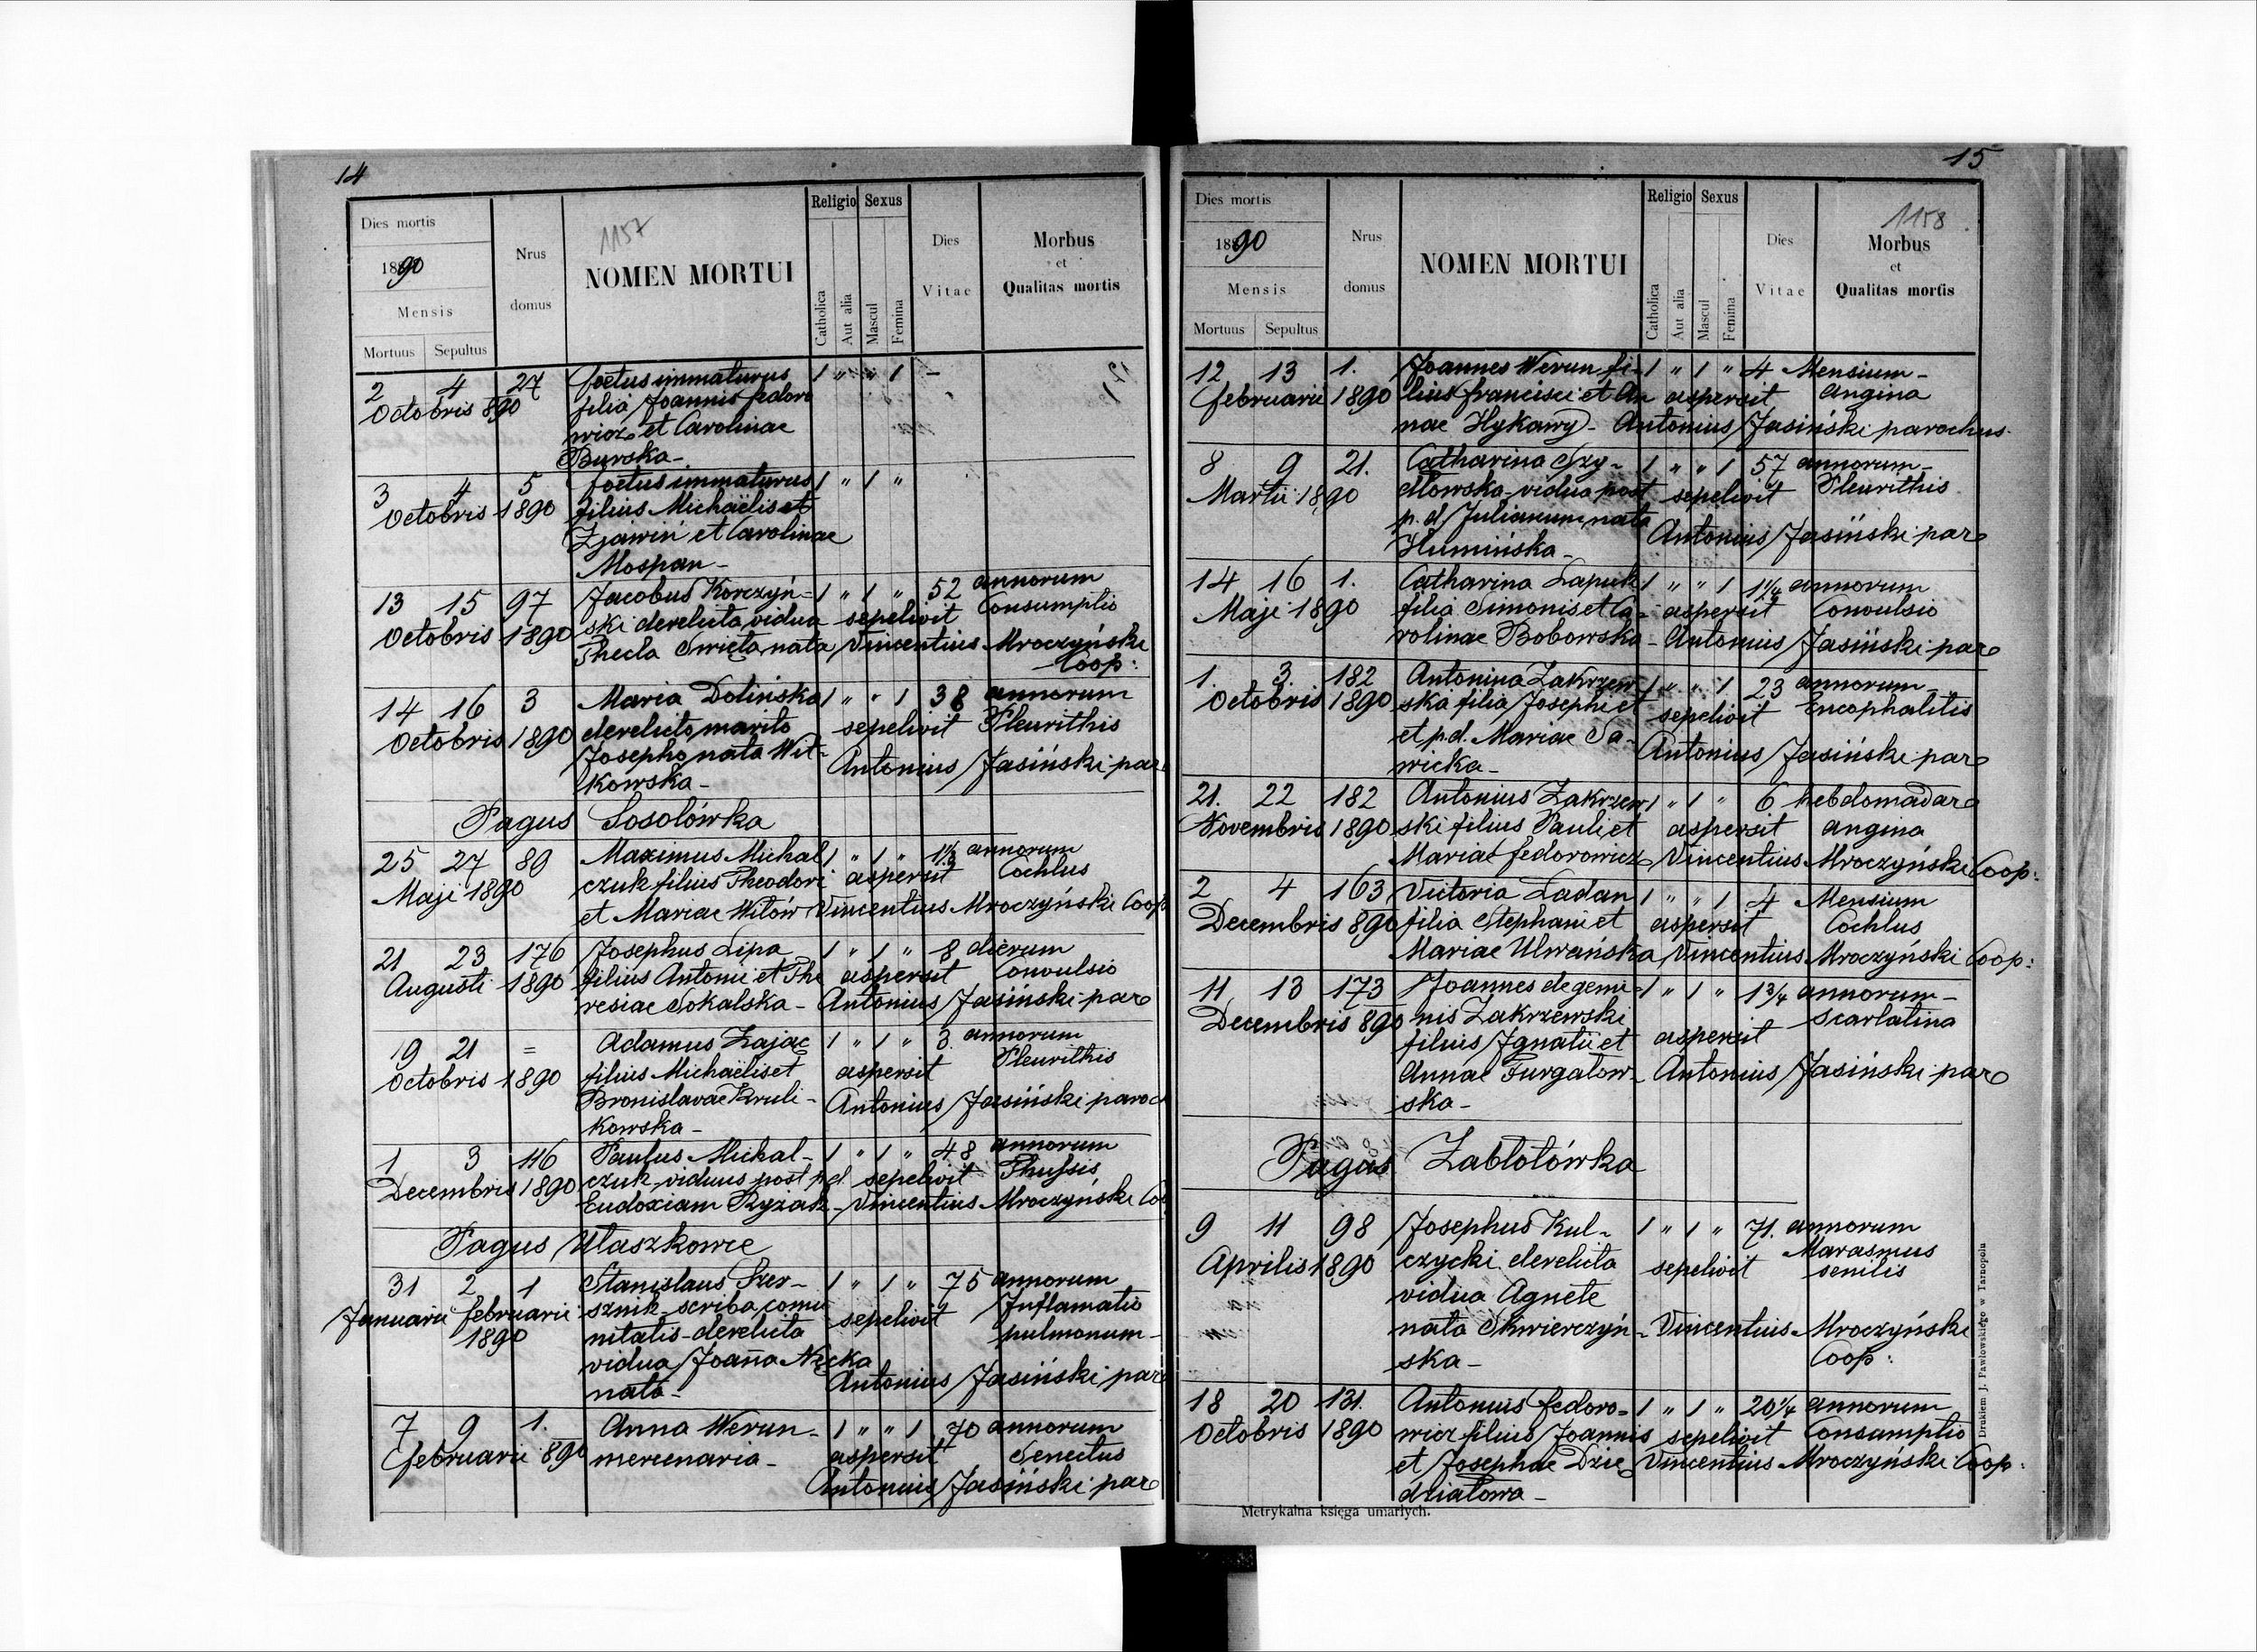 14
Dies mortis
1890
Mensis
Mortuus Sepultus
Nrus
domus
1157
NOMEN MORTUI
Religio Sexus
Catholica
Aut alia
Mascul
Femina
Dies
Vitae
Morbus
et
Qualitas mortis
2 4 27 foetus immaturus 1 " " 1 -
Octobris 890 filia Joannis fedoro
wicz et Carolinae
Burska-
3 4 5 foetus immaturus 1 " 1 "
Octobris 1890 filius Michaëlis et
Zjawin et Carolinae
Mospan-
13 15 97 Jacobus Korczyń= 1 " 1 " 52 annorum
Octobris 1890 ski derelicta vidua sepelivit Consumptio
Thecla Swięta nata Vincentius Mroczyński
Coop:
14 16 3 Maria Dolińska 1 " " 1 38 annorum
Octobris 1890 derelicto marito sepelivit Pleurithis
Josepho nata Wit- Antonius Jasiński par
kowska-
Pagus Sosolówka
25 27 89 Maximus Michal 1 " 1 " 1½ annorum
Maji 1890 czuk filius Theodori aspersit Cochlus
et Mariae Witów Vincentius Mroczyński Coop
21 23 176 Josephus Lipa 1 " 1 " 8 dierum
Augusti 1890 filius Antonii et The aspersit Convulsio
resiae Sokalska- Antonius Jasiński par
19 21 = Adamus Zając 1 " 1 " 3 annorum
Octobris 1890 filius Michaëlis et aspersit Pleurithis
Bronislavae Kruli- Antonius Jasiński paroc
kowska-
1 3 116 Paulus Michal- 1 " 1 " 48 annorum
Decembris 1890 czuk viduus post p.d. sepelivit Thyssis
Eudoxiam Ryżak- Vincentius Mroczyński Co
Pagus Ułaszkowce
31 2 1 Stanislaus Szer- 1 " 1 " 75 annorum
Januarii februarii sznik-scriba comu sepelivit Inflamatio
1890 nitatis-derelicta pulmonum-
vidua Joaña
nata- Antonius Jasiński par
7 9 1. Anna Werun- 1 " " 1 70 annorum
februarii 890 mercenaria- aspersit Senectus
Antonius Jasiński par
15
Dies mortis
1890
Mensis
Mortuus Sepultus
Nrus
domus
NOMEN MORTUI
Religio Sexus
Catholica
Aut alia
Mascul
Femina
Dies
Vitae
1158
Morbus
et
Qualitas mortis
12 13 1. Joannes Werun fi- 1 " 1 " 4 Mensium-
februarii 1890 lius francisci et An aspersit angina
nae Hykawy- Antonius Jasiński parochus.
8 9 21. Catharina Szy- 1 " " 1 57 annorum-
Martii 1890 dłowska-vidua post sepelivit Pleurithis
p.d. Julianum nata Antonius Jasiński par
Humińska-
14 16 1. Catharina Lapuk 1 " " 1 1¼ annorum
Maji 1890 filia Simonis et Ca- aspersit Convulsio
rolinae Bobowska- Antonius Jasiński par
1. 3. 182 Antonina Zakrzew- 1 " " 1 23 annorum-
Octobris 1890 ska filia Josephi et sepelivit Encephalitis
et p.d. Mariae Sa- Antonius Jasiński par
wicka-
21. 22 182 Antonius Zakrzew 1 " 1 " 6 hebdomadar
Novembris 1890 ski filius Pauli et aspersit angina
Mariae fedorowicz Vincentius Mroczyński Coop:
2 4 163 Victoria Ladan 1 " " 1 4 Mensium
Decembris 890 filia Stephani et aspersit Cochlus
Mariae Ulwańska Vincentius Mroczyński Coop:
11 13 173 Joannes de gemi- 1 " 1 " 1¾ annorum-
Decembris 890 nis Zakrzewski aspersit Scarlatina
filius Ignatii et
Annae Furgałow- Antonius Jasiński par
ska-
Pagus Zabłotówka
9 11 98 Josephus Kul- 1 " 1 " 71. annorum
Aprilis 1890 czycki derelicta sepelivit Marasmus
vidua Agnete senilis
nata Skwierczyń- Vincentius Mroczyński
ska- Coop:
18 20 131. Antonius fedoro- 1 " 1 " 20¼ annorum
Octobris 1890 wicz filius Joannis sepelivit Consumptio
et Josephae Dzie Vincentius Mroczyński Coop:
działowa-
Metrykalna księga umarłych.
Drukiem J. Pawłowskiego w Tarnopolu